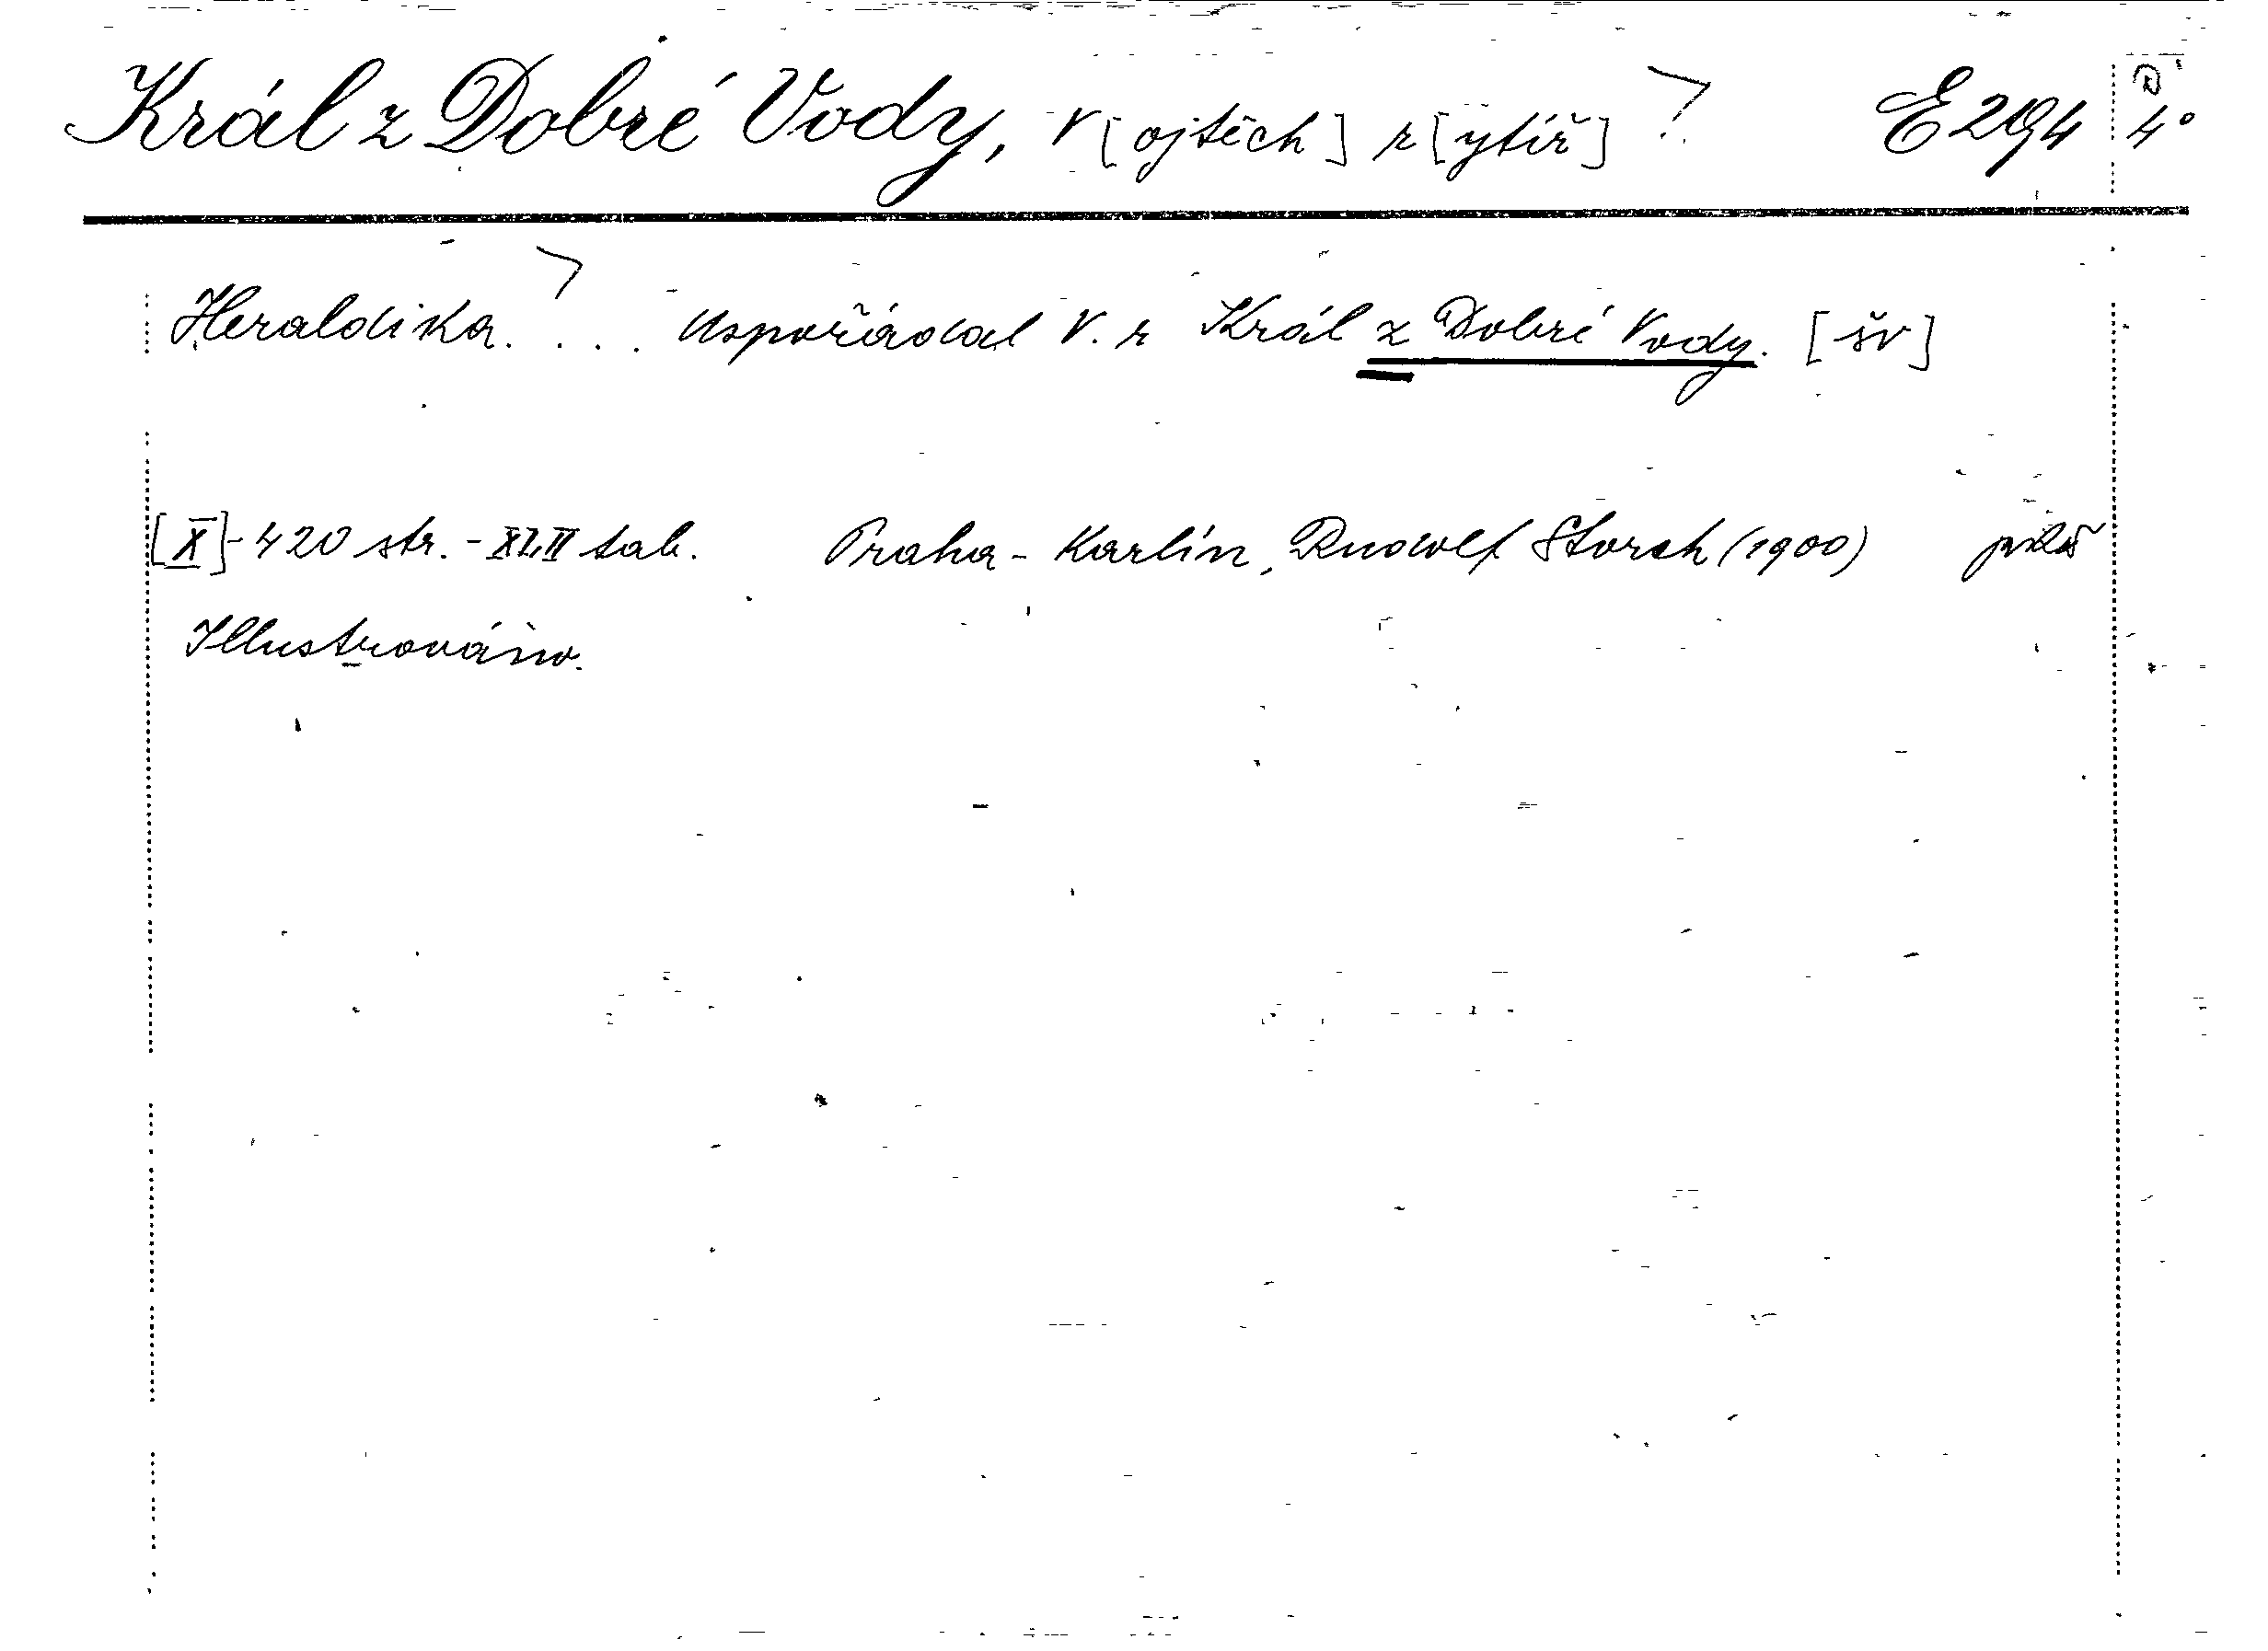 Král z Dobré Vody, V[ojtěch] r[ytíř] E 294 4°
Heraldika. ... Uspořádal V. r Král z Dobré Vody. [šv]
[X]-420 str. - XLII tab. Praha - Karlín, Rudolf Storch (1900)
Illustrováno.